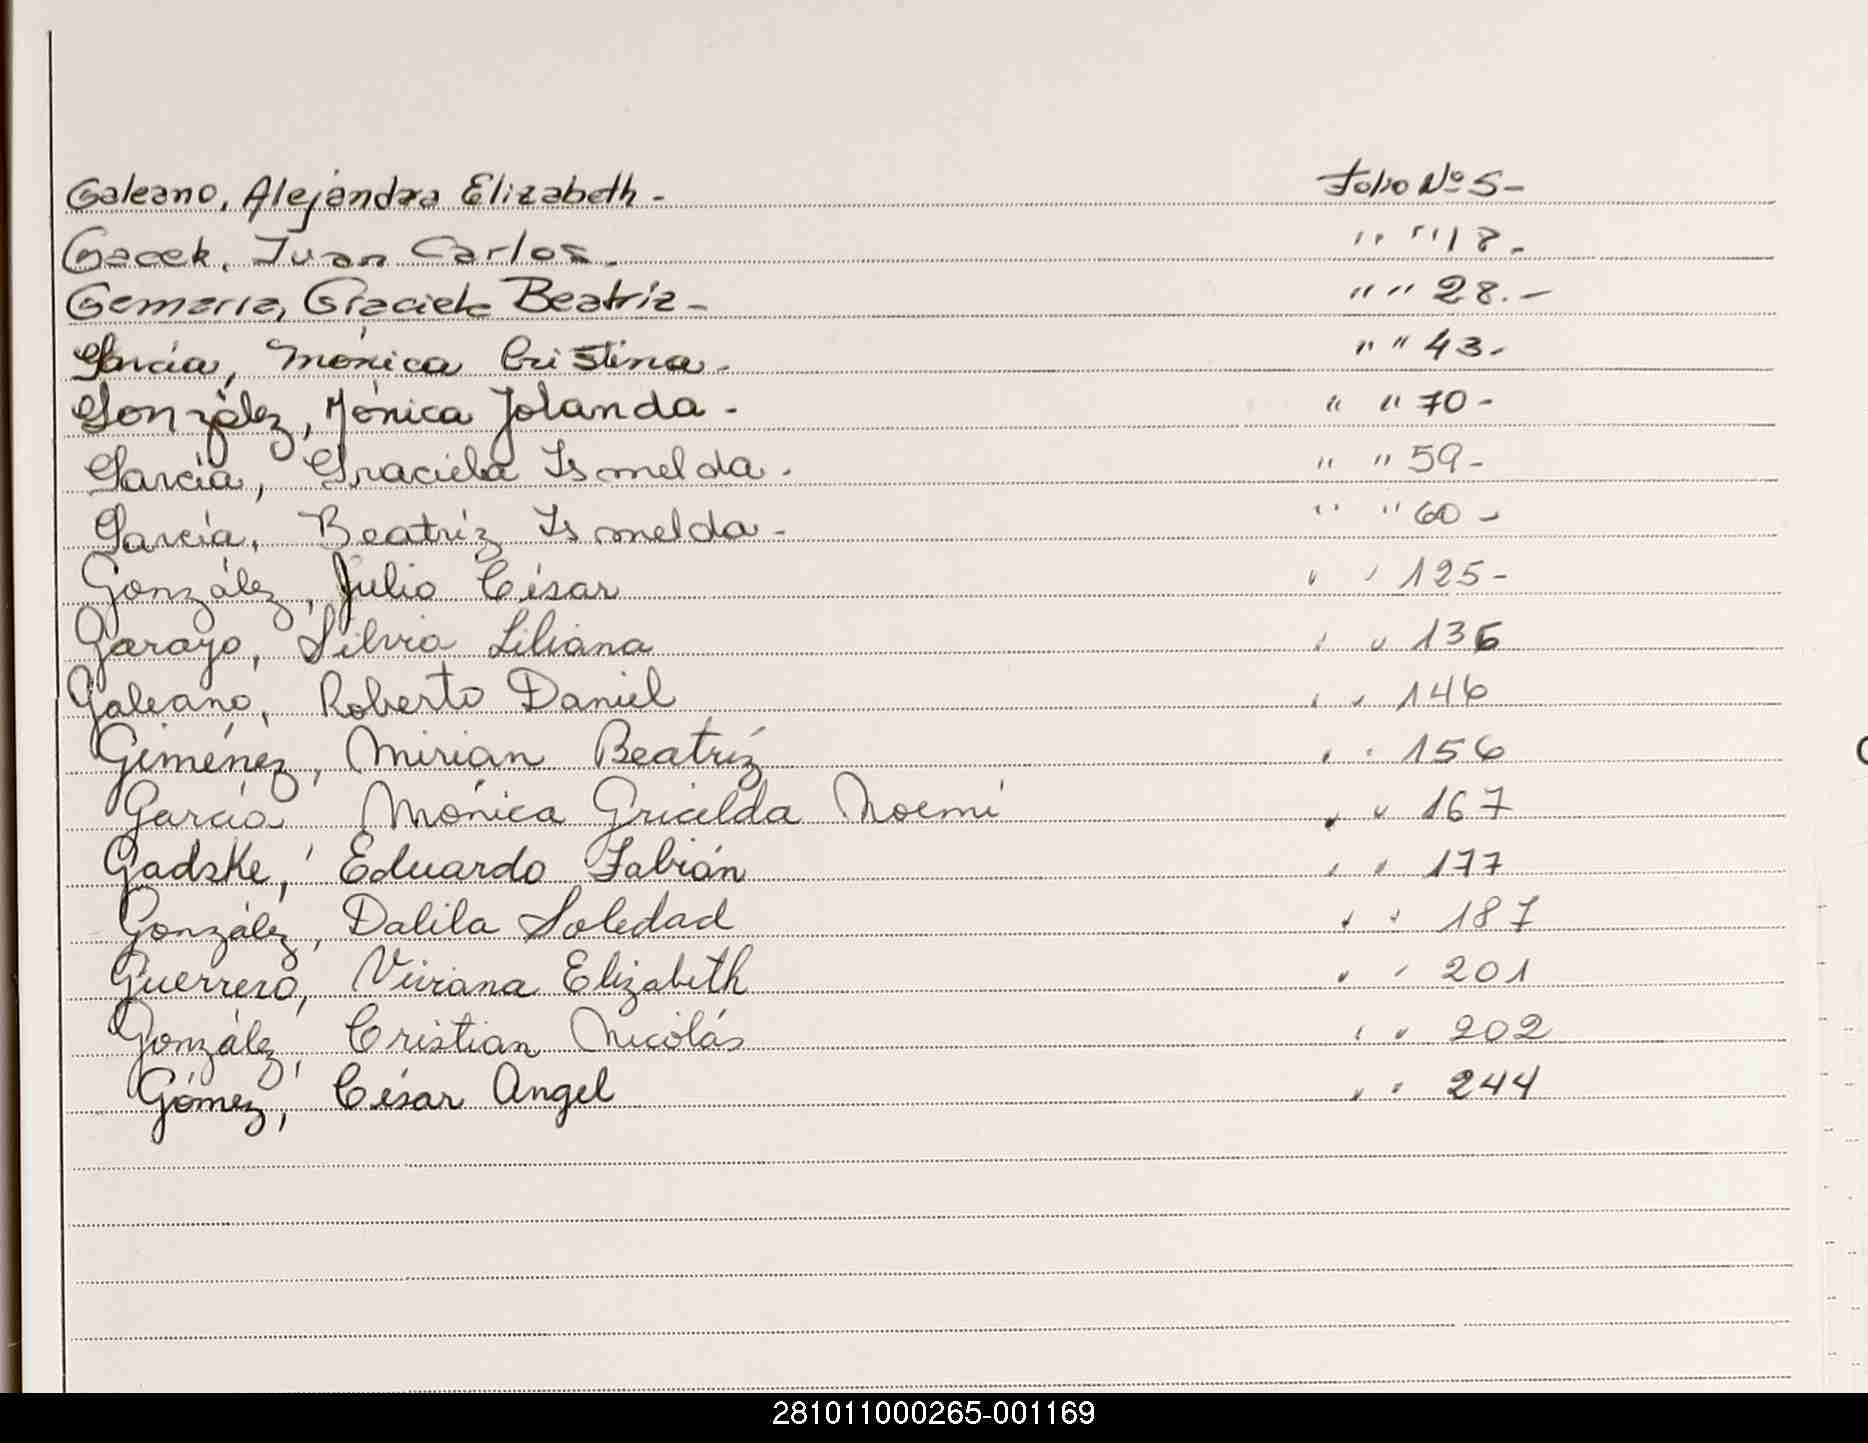 Galeano, Alejandra Elizabeth. Folio Nº 5-
Gacek, Juan Carlos. " " 18.
Gemaria, Graciela Beatriz- " " 28.-
García, Mónica Cristina. " " 43.
González, Mónica Yolanda. " " 70-
García, Graciela Ismelda. " " 59-
García, Beatríz Ismelda- " " 60-
González, Julio César " " 125-
Garayo, Silvia Liliana " " 136
Galeano, Roberto Daniel " " 146
Giménez, Mirian Beatríz " " 156
García Mónica Gricelda Noemí " " 167
Gadske, Eduardo Fabián " " 177
González, Dalila Soledad " " 187
Guerrero, Viviana Elizabeth " " 201
González, Cristian Nicolás " " 202
Gómez, César Angel " " 244
281011000265-001169